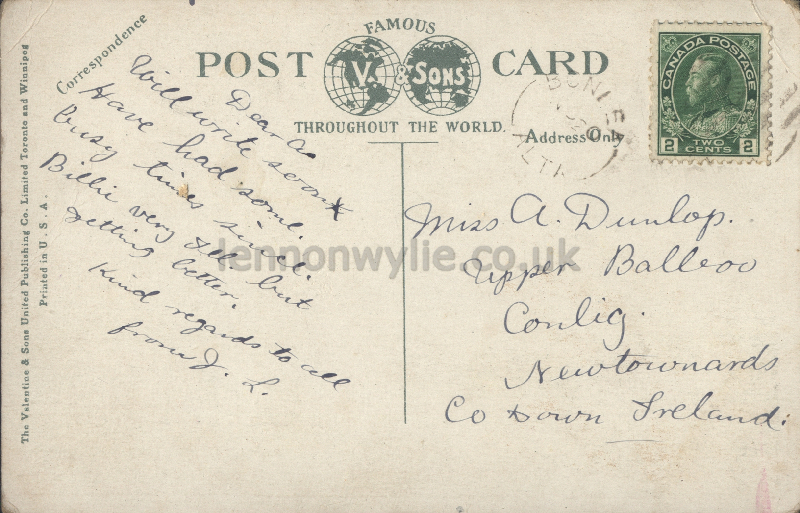 FAMOUS
POST CARD
V. & SONS
THROUGHOUT THE WORLD.
Correspondence
Address Only
CANADA POSTAGE
2 TWO CENTS 2
Dear A
Will write soon
Have had some
busy times since.
Billie very ill but
getting better.
Kind regards to all
from J. L.
Miss A. Dunlop.
Upper Balloo
Conlig.
Newtownards
Co Down Ireland.
The Valentine & Sons United Publishing Co. Limited Toronto and Winnipeg
Printed in U. S. A.
lennonwylie.co.uk